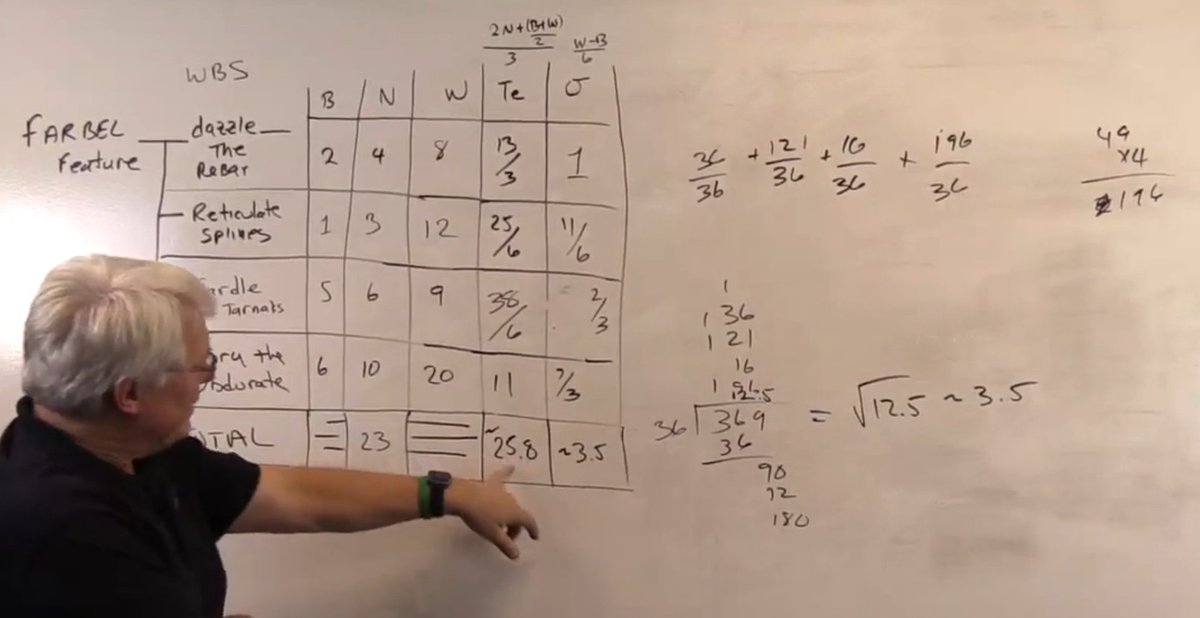 2N+(B+W)/2
3
W-B
6
WBS
B N W Te σ
FARBEL Feature
dazzle The Rebar 2 4 8 13/3 1
Reticulate splines 1 3 12 25/6 11/6
5 6 9 38/6 2/3
the 6 10 20 11 7/3
TOTAL 23 ~25.8 ~3.5
36/36 + 121/36 + 16/36 + 196/36
49
x4
196
1
1 36
1 21
16
1 96
12.5
36 369 = √12.5 ~ 3.5
36
90
72
180